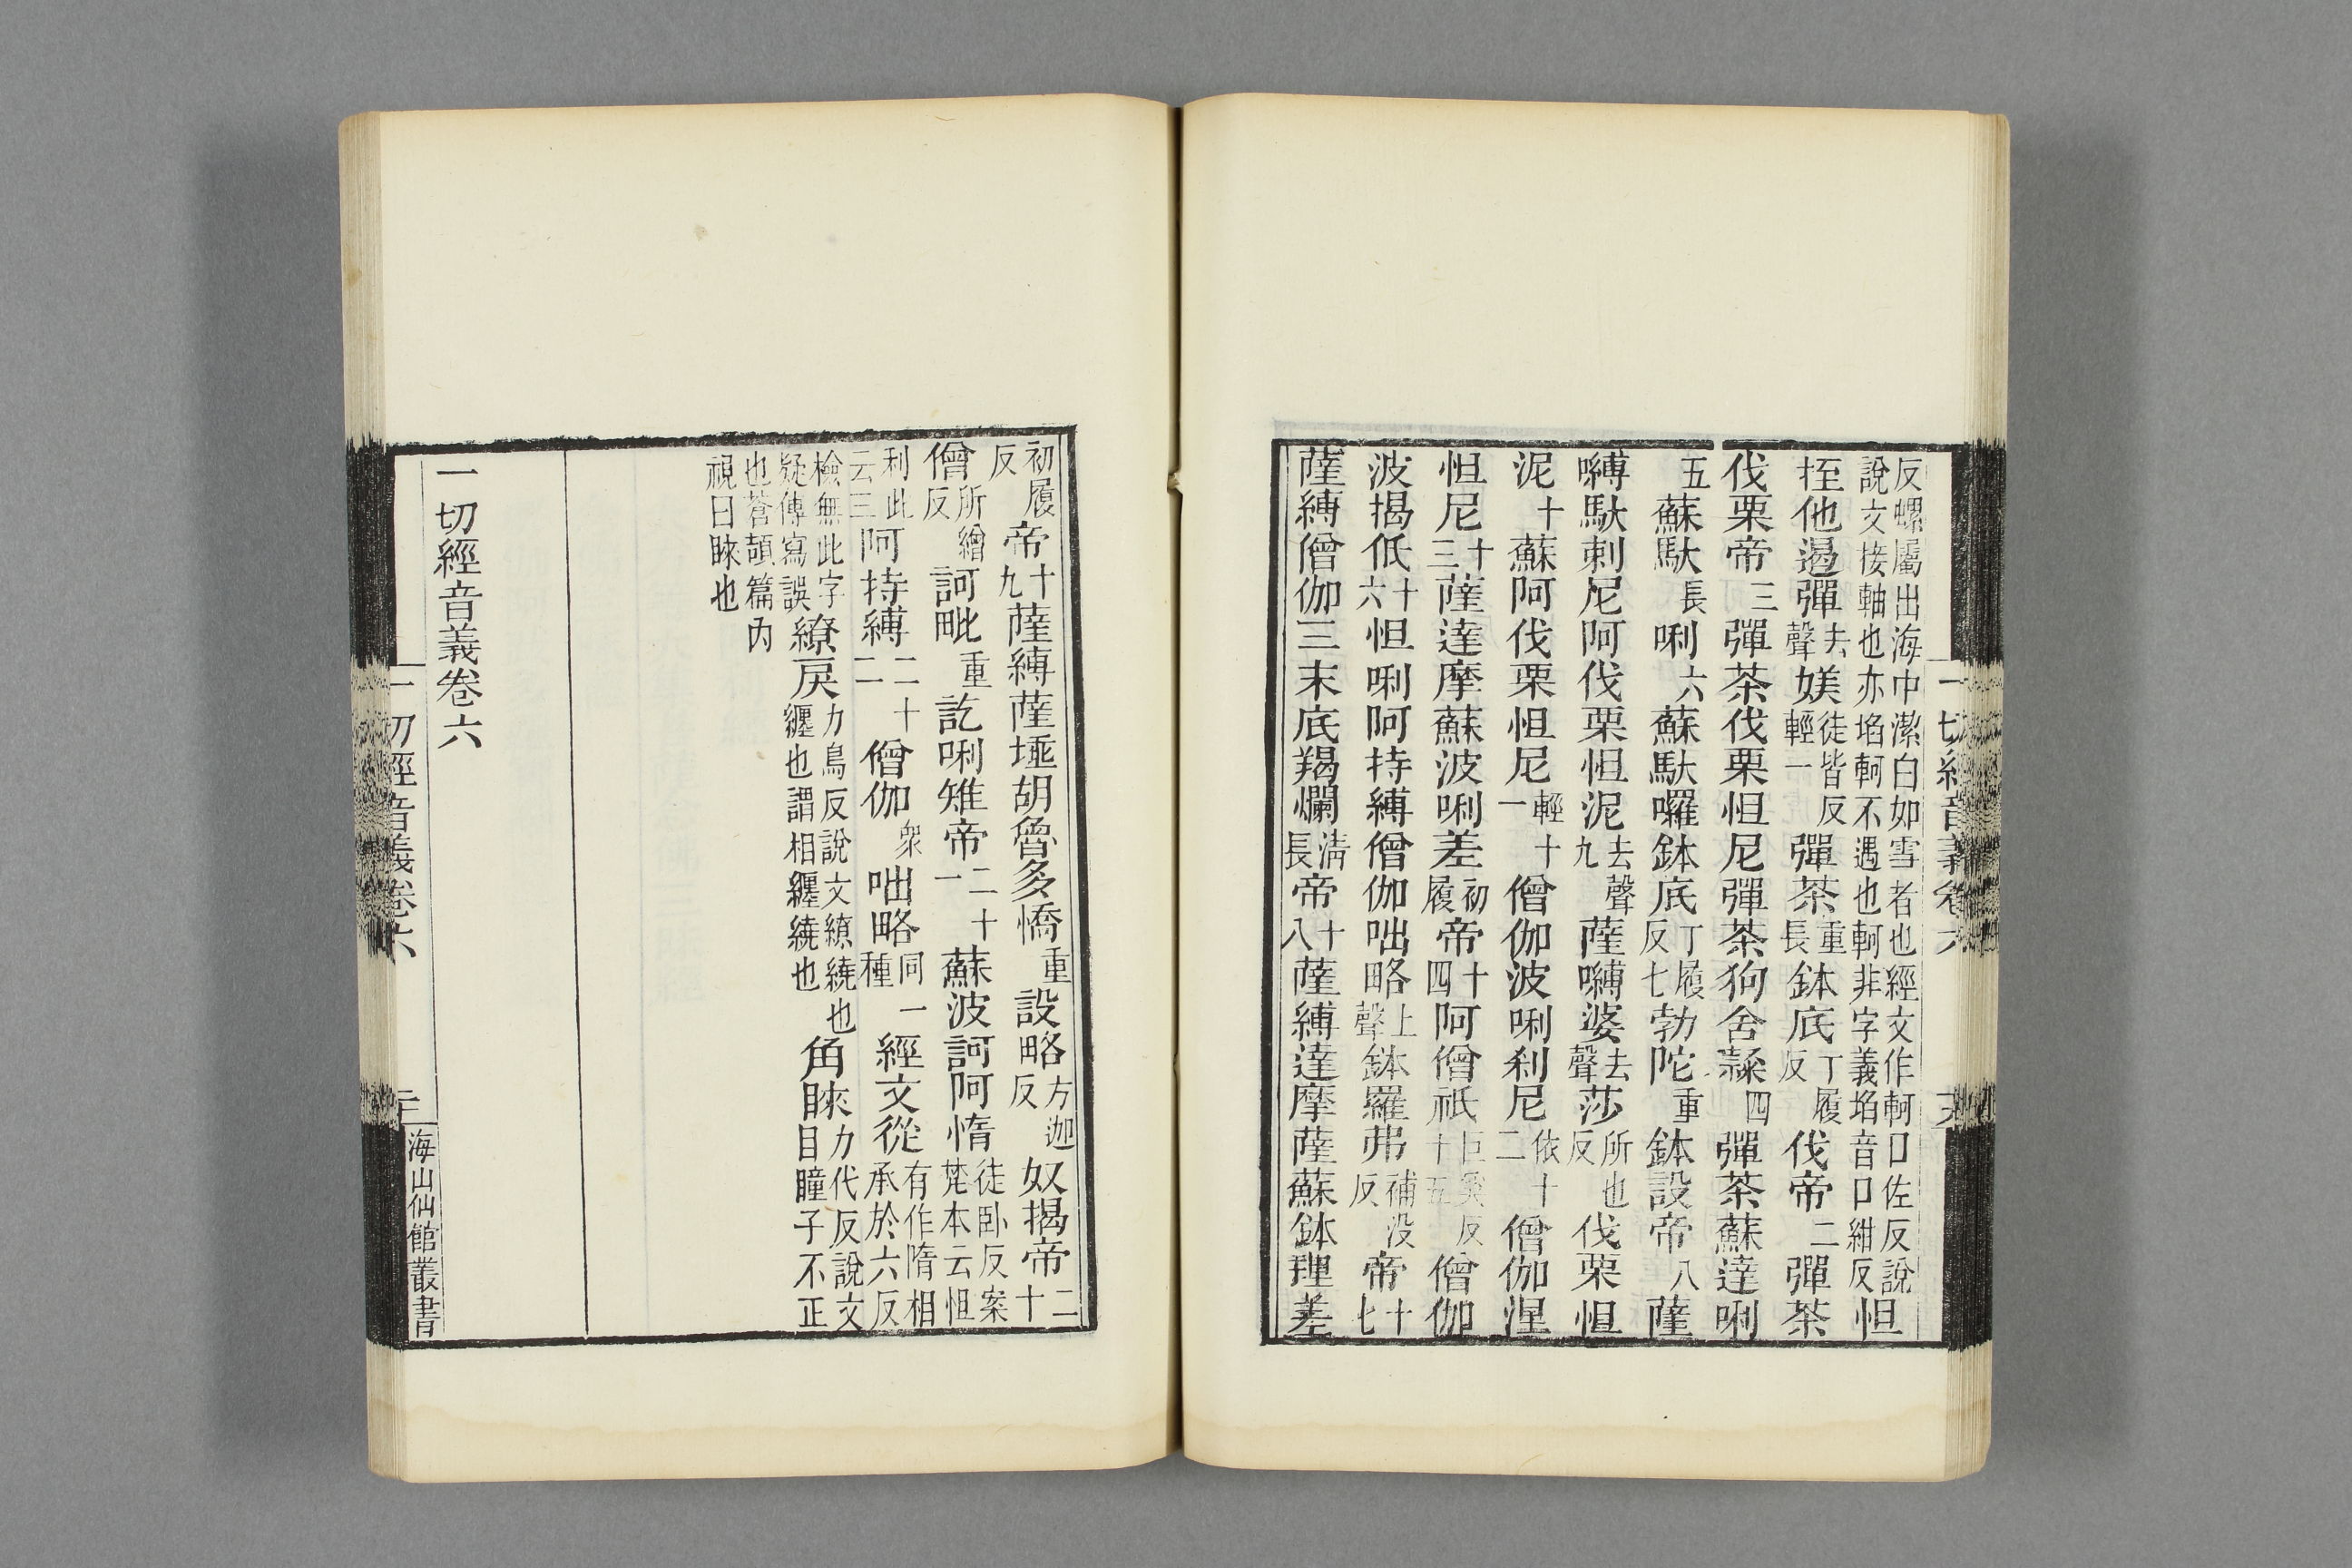 反螺屬出海中潔白如雪者也經文作軻口佐反說
說文接軸也亦埳軻不遇也軻非字義埳音口紺反怛
挃他遏彈去聲媄徒皆反輕一彈茶重長鉢底丁履反伐帝二彈茶
伐栗帝三彈茶伐栗怛尼彈茶狗舍䋈四彈茶蘇達唎
五蘇馱長唎六蘇馱囉鉢底丁履反七勃陀重鉢設帝八薩
嚩馱剌尼阿伐栗怛泥去聲九薩嚩婆去聲莎所也反伐栗怛
泥十蘇阿伐栗怛尼輕十一僧伽波唎刹尼依十二僧伽涅
怛尼十三薩達摩蘇波唎差初履帝十四阿僧祇十五僧伽
波揭低十六怛唎阿持縛僧伽咄略上聲鉢羅弗補没反帝十七
薩縛僧伽三末底羯爛清長帝十八薩縛達摩薩蘇鉢理差
一切經音義卷六
初履反帝十九薩縛薩埵胡魯多憍重設略方迦反奴揭帝二十
僧所繒反訶毗重訖唎雉帝二十一蘇波訶阿惰徒臥反案梵本云怛
利此云三阿持縛二十二僧伽衆咄略同一種經文從有作隋相承於六反
檢無此字疑傳寫誤繚戾力鳥反說文繚繞也纒也謂相纒繞也角睞力代反說文目瞳子不正
也蒼頡篇內視曰睞也
一切經音義卷六
一切經音義卷六
海山仙館叢書